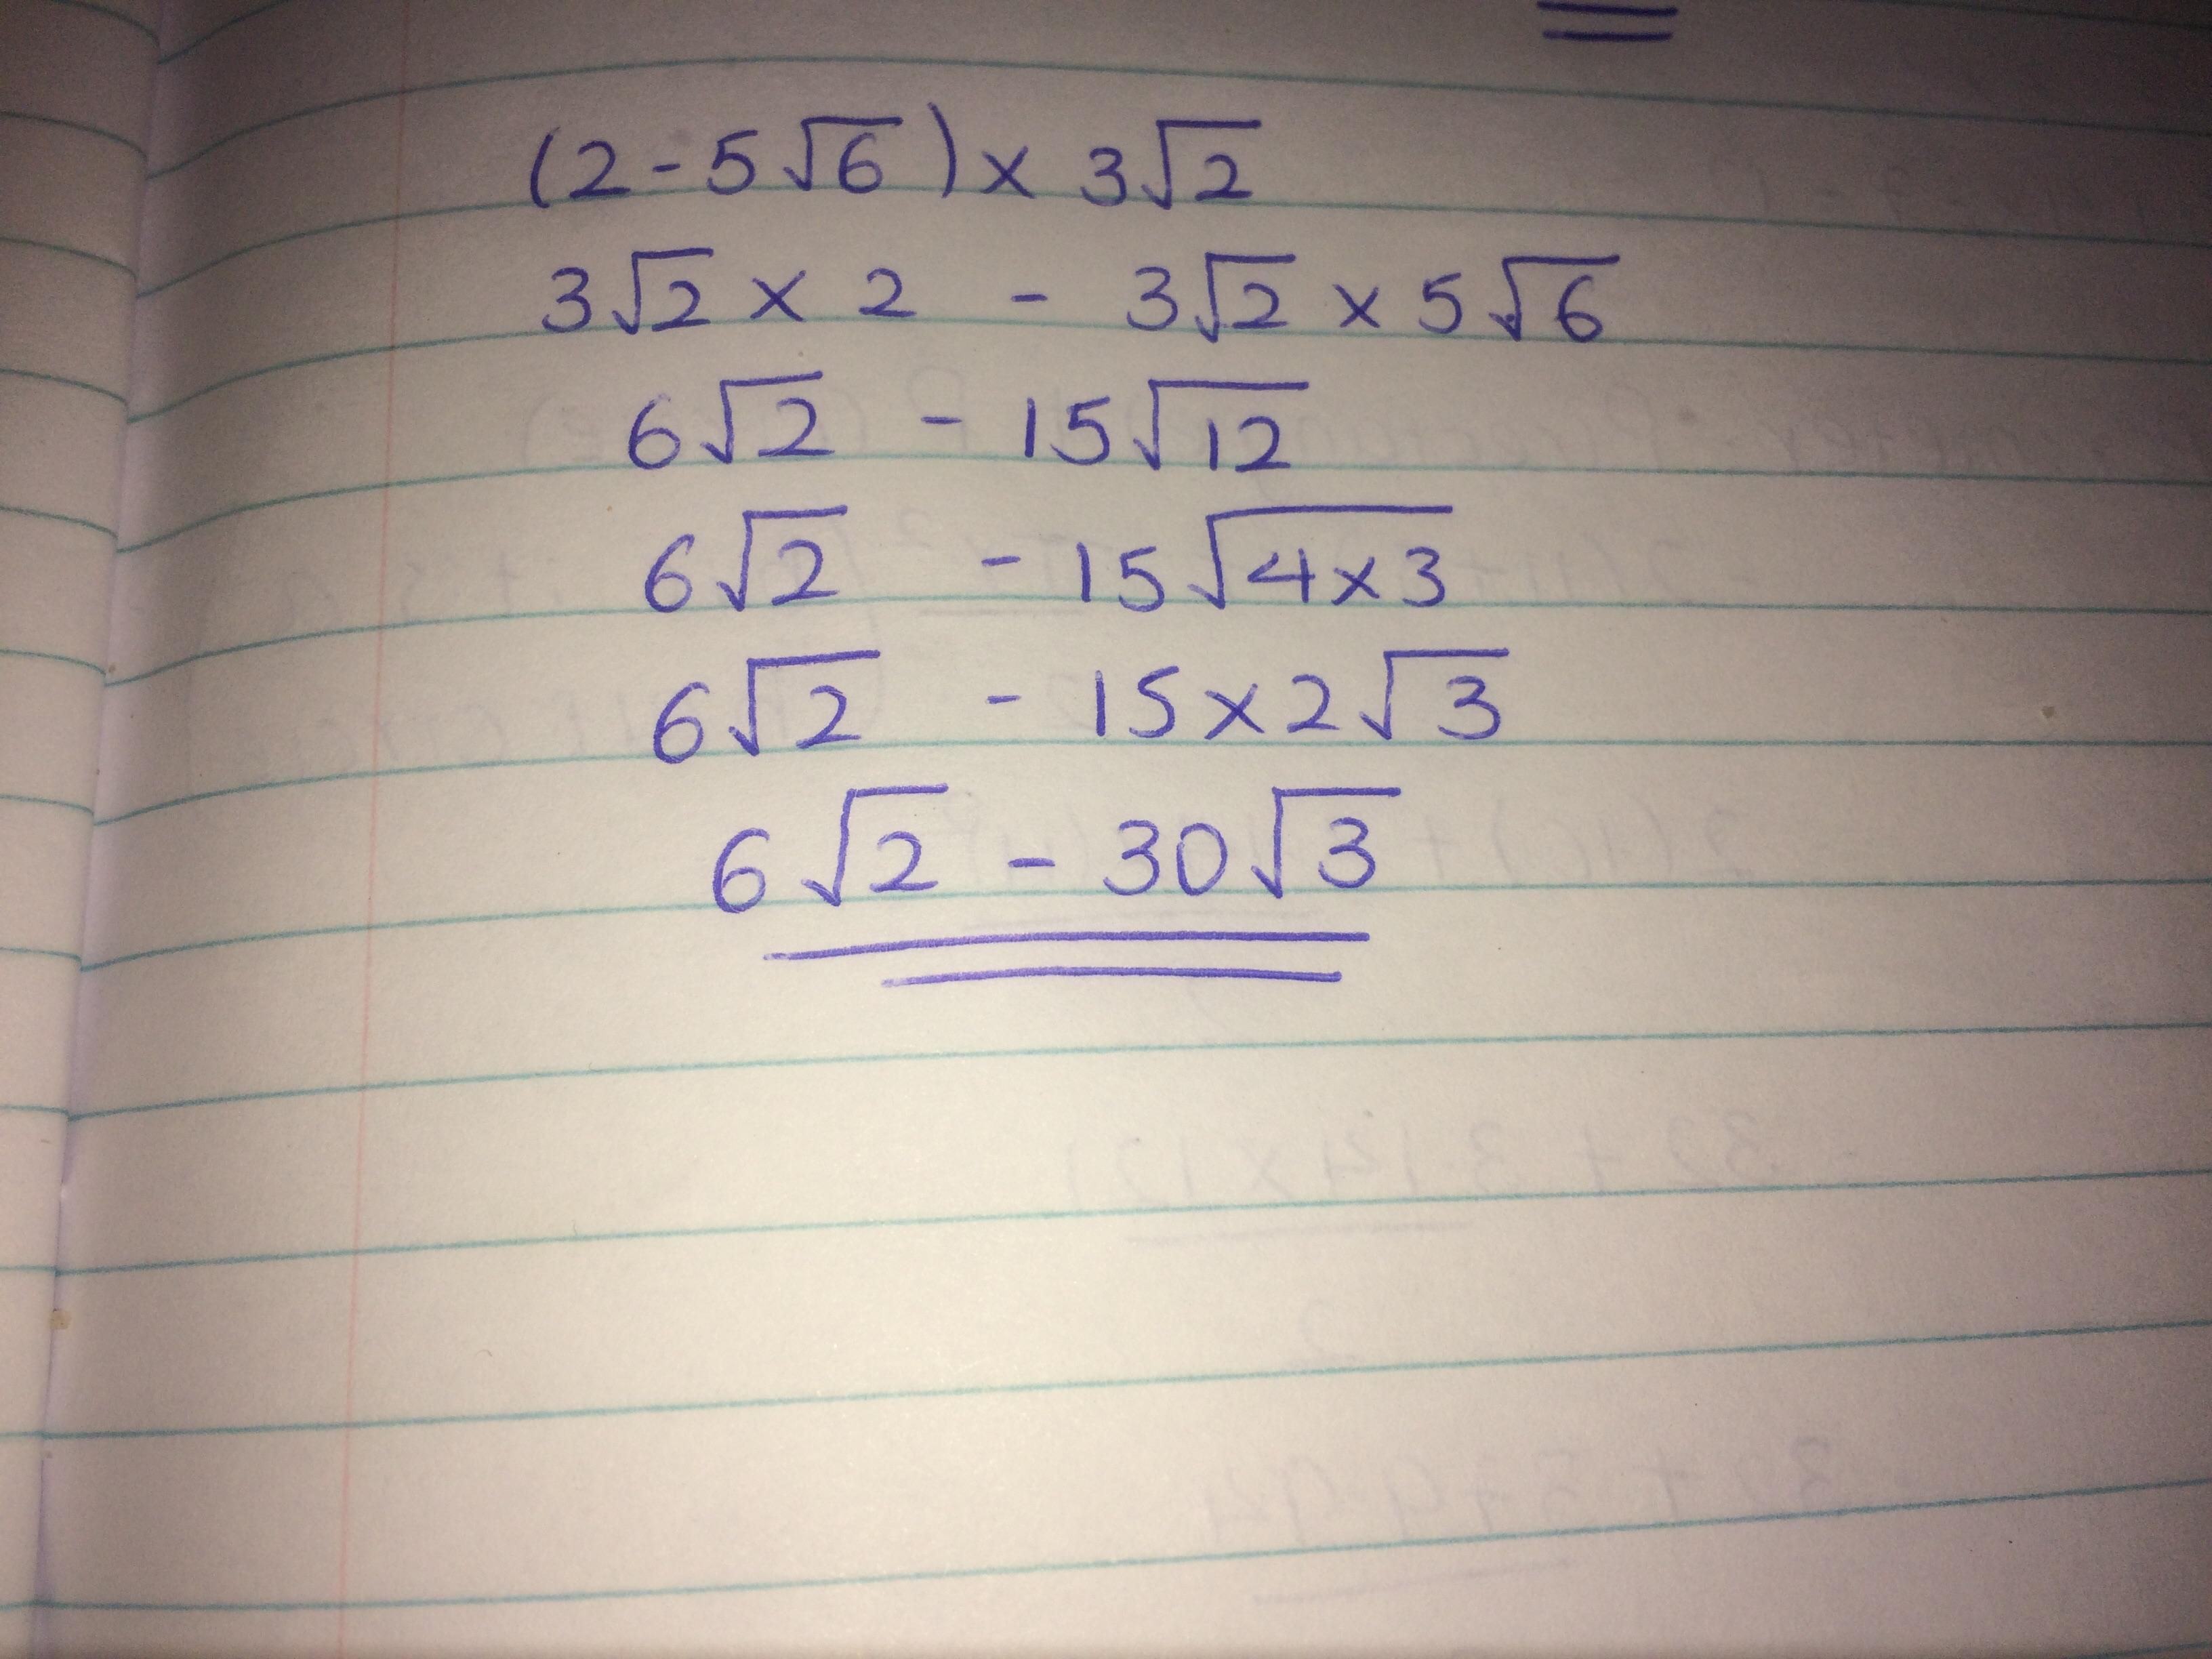 (2-5√6) x 3√2
3√2 x 2 - 3√2 x 5√6
6√2 - 15√12
6√2 - 15√4x3
6√2 - 15x2√3
6√2 - 30√3